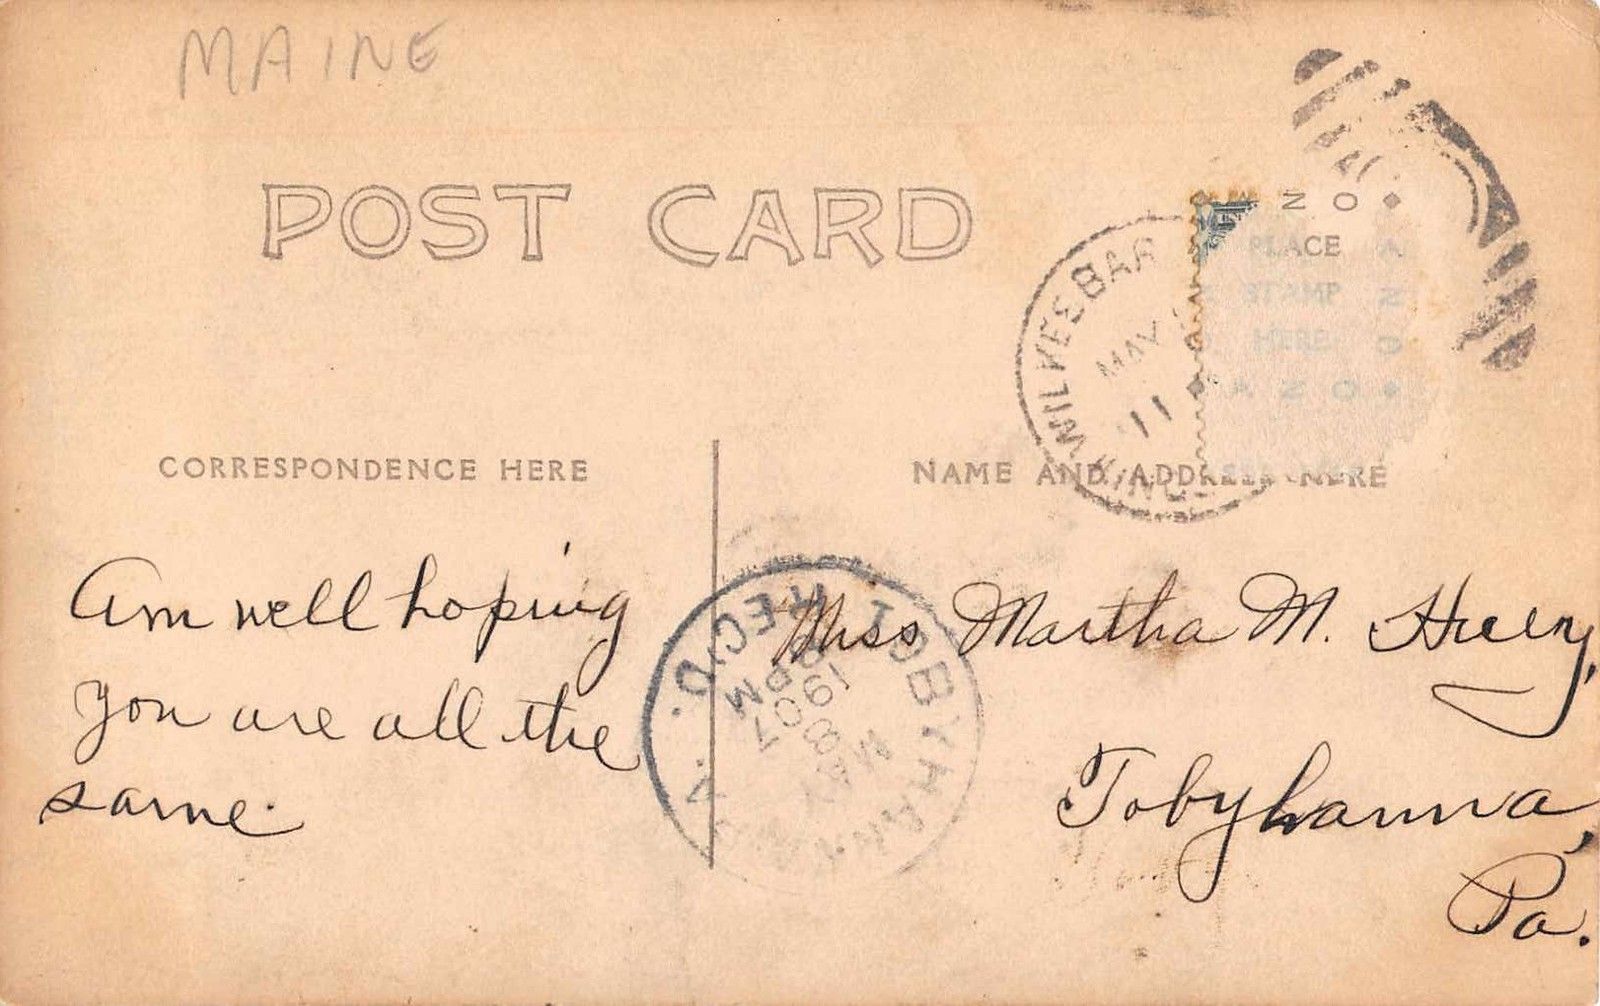 MAINE
POST CARD
CORRESPONDENCE HERE
NAME AND ADDRESS HERE
PLACE
STAMP
HERE
AZO
MAY
11
Am well hoping
you are all the
same.
Miss Martha M.
Tobyhanna,
Pa.
TOBYHANNA, PA.
REC'D.
MAY
8
7 PM
1907